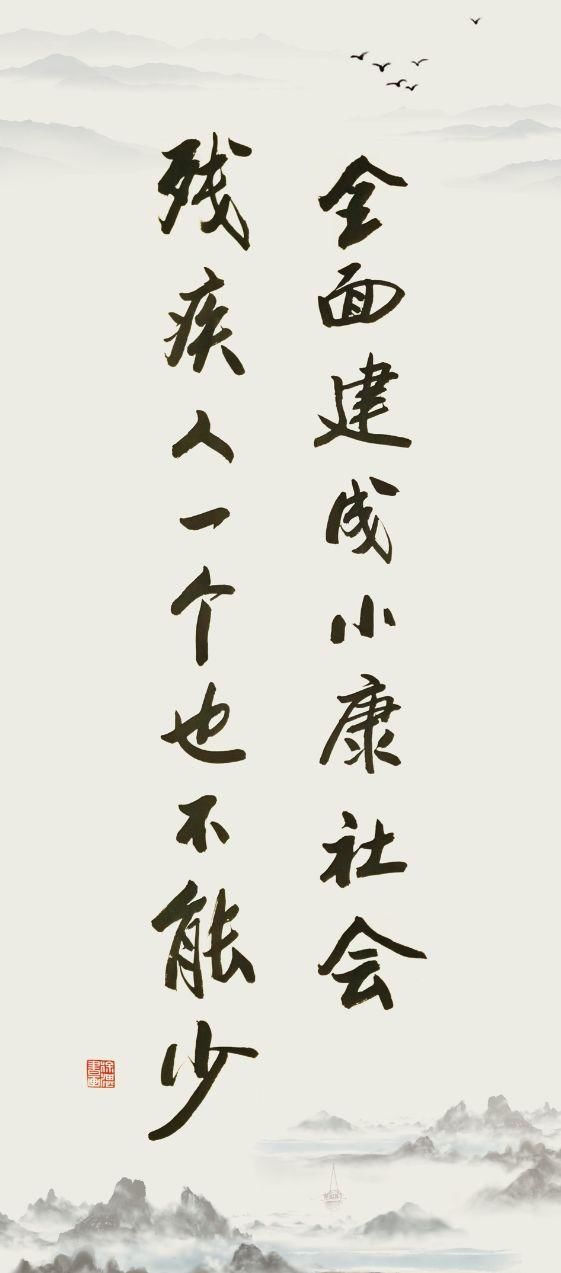 全面建成小康社会
残疾人一个也不能少